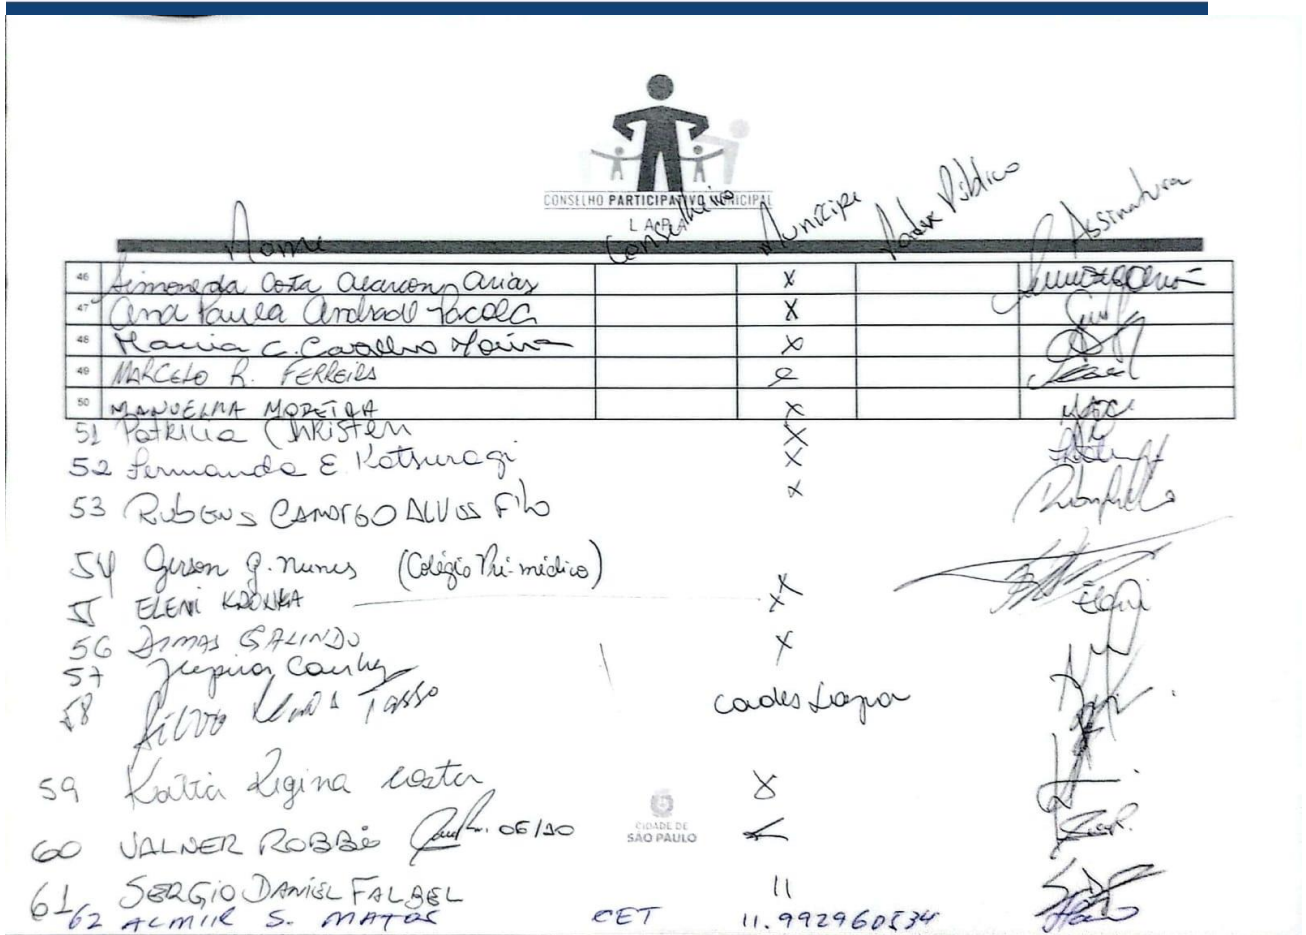 CONSELHO PARTICIPATIVO MUNICIPAL
LAPA
Nome Conselheiro Munícipe Poder Público Assinatura
46 Simone da Costa Alarcon Arias X
47 Ana Paula Andrade Pacola X
48 Maria C. Carvalho X
49 MARCELO R. FERREIRA
50 MANUELMA MOREIRA X
51 Patricia Christen X
52 Fernanda E. Katsuragi X
53 RUBENS CAMARGO ALVES Filho X
54 Gerson G. Nunes (Colégio Pré-médico) X
55 ELENI KRONKA X Eleni
56 DIMAS GALINDO X
57
58 Silvio Tasso Cades Lapa
59 Katia Regina Costa X
60 VALNER ROBBE 05/10
CIDADE DE
SÃO PAULO
61 SERGIO DANIEL FALBEL 11
62 ALMIR S. MATOS CET 11.992960534